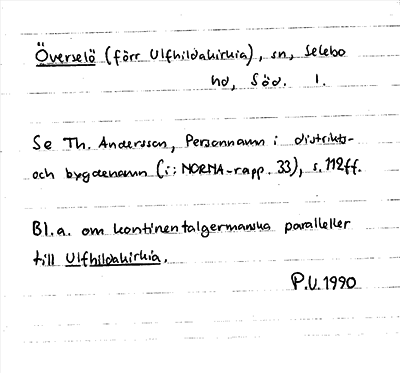 Överselö (förr Ulfhildakirkia), sn, Selebo
hd, Söd. 1.
Se Th. Andersson, Personnamn i distrikts-
och bygdenamn (i: NORNA-rapp. 33), s. 112ff.
Bl.a. om kontinentalgermanska paralleller
till Ulfhildakirkia.
P.U. 1990